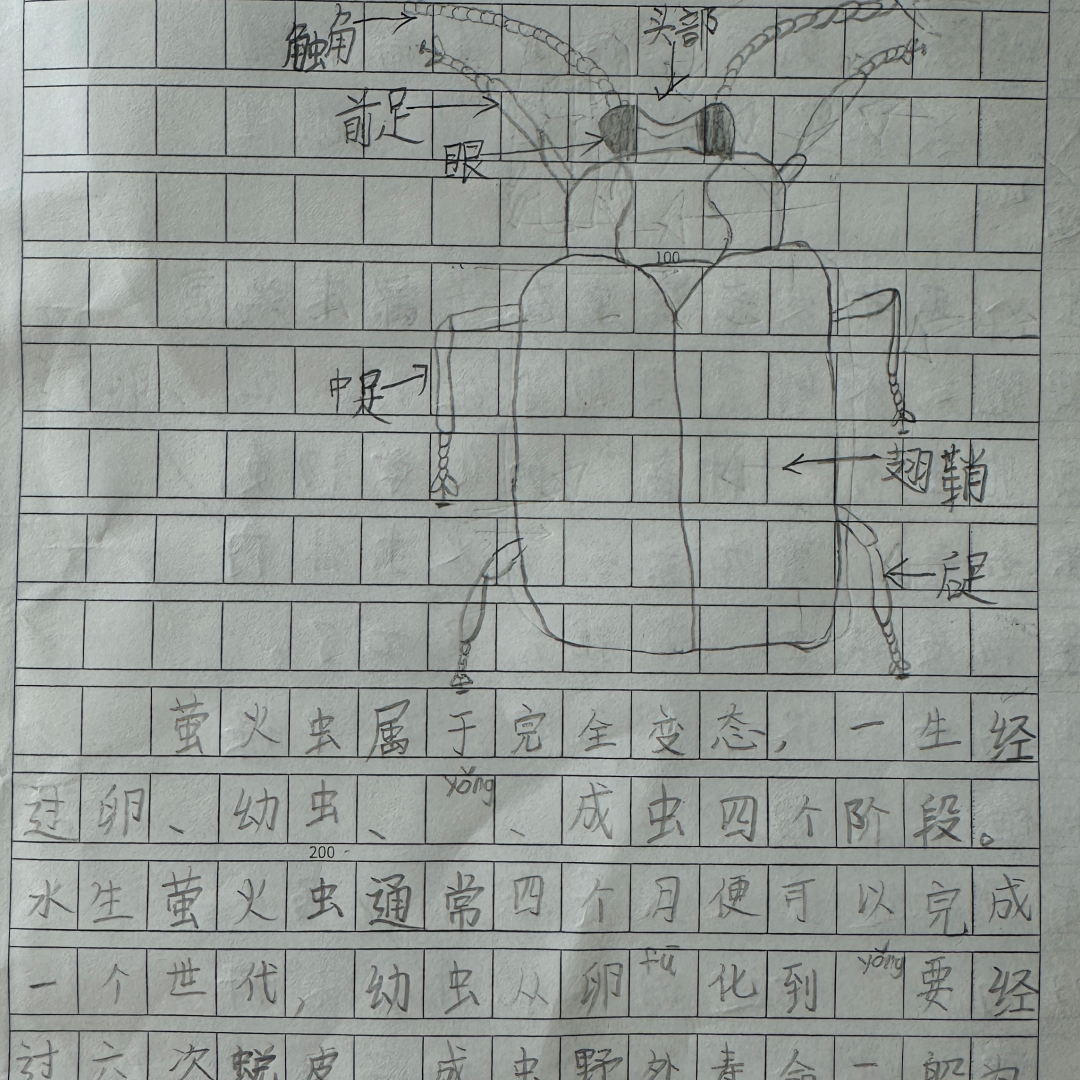 触角
头部
前足
眼
100
中足
翅鞘
后足
萤火虫属于完全变态，一生经
过卵、幼虫、yǒng、成虫四个阶段。
200
水生萤火虫通常四个月便可以完成
一个世代，幼虫从卵fū化到yǒng要经
过六次蜕皮 成虫野外寿命一般为